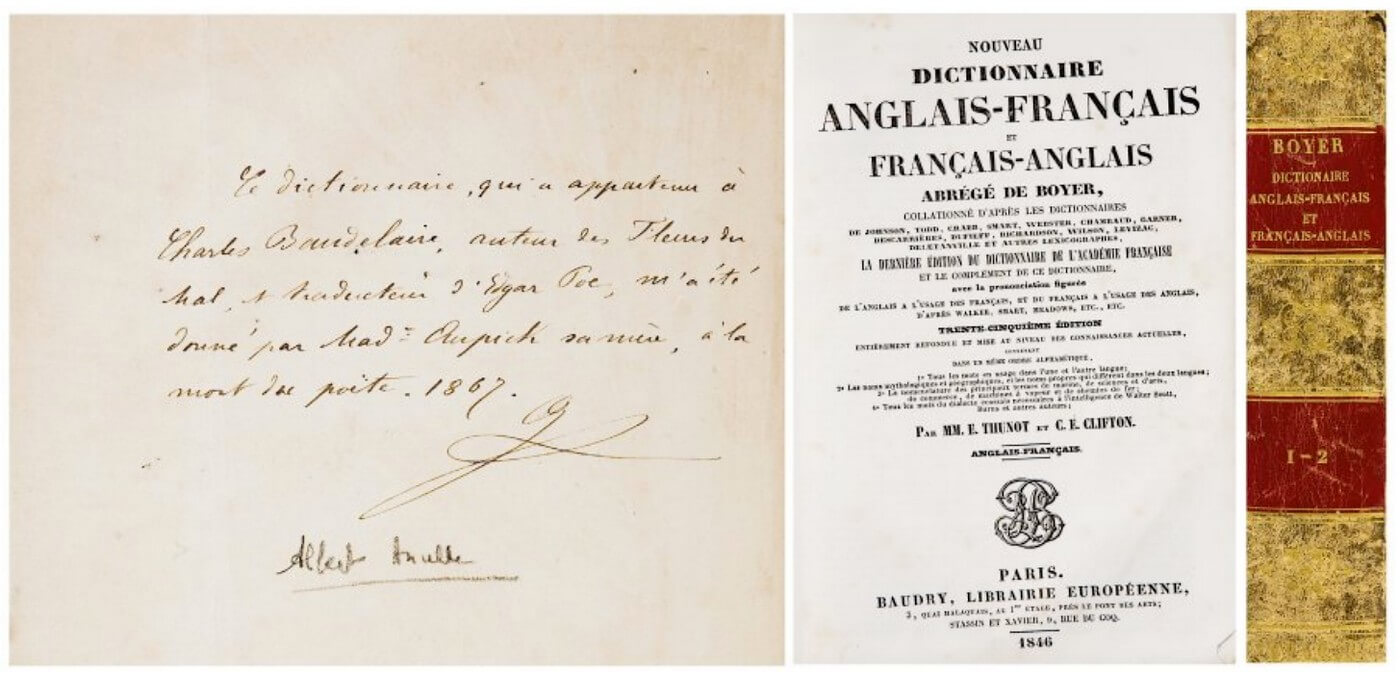 Ce dictionnaire, qui a appartenu à
Charles Baudelaire, auteur des Fleurs du
Mal, et traducteur d'Edgar Poe, m'a été
donné par Mad.e Aupick sa mère, à la
mort du poète. 1867.
Albert
NOUVEAU
DICTIONNAIRE
ANGLAIS-FRANÇAIS
ET
FRANÇAIS-ANGLAIS
ABRÉGÉ DE BOYER,
COLLATIONNÉ D'APRÈS LES DICTIONNAIRES
DE JOHNSON, TODD, CRABB, SMART, WEBSTER, CHAMBAUD, GARNER,
DESCARRIÈRES, DUTIEFF, RICHARDSON, WILSON, LEVIZAC,
DELETANVILLE ET AUTRES LEXICOGRAPHES,
LA DERNIÈRE ÉDITION DU DICTIONNAIRE DE L'ACADÉMIE FRANÇAISE
ET LE COMPLÉMENT DE CE DICTIONNAIRE,
avec la prononciation figurée
DE L'ANGLAIS A L'USAGE DES FRANÇAIS, ET DU FRANÇAIS A L'USAGE DES ANGLAIS,
D'APRÈS WALKER, SMART, MEADOWS, ETC., ETC.
TRENTE-CINQUIÈME ÉDITION
ENTIÈREMENT REFONDUE ET MISE AU NIVEAU DES CONNAISSANCES ACTUELLES,
CONTENANT
DANS UN MÊME ORDRE ALPHABÉTIQUE,
1° Tous les mots en usage dans l'une et l'autre langue;
2° Les noms mythologiques et géographiques, et les noms propres qui diffèrent dans les deux langues;
3° La nomenclature des principaux termes de marine, de sciences et d'arts,
de commerce, de machines à vapeur et de chemins de fer;
4° Tous les mots du dialecte écossais nécessaires à l'intelligence de Walter Scott,
Burns et autres auteurs;
PAR MM. E. THUNOT ET C. E. CLIFTON.
ANGLAIS-FRANÇAIS.
PARIS.
BAUDRY, LIBRAIRIE EUROPÉENNE,
3, QUAI MALAQUAIS, AU 1er ÉTAGE, PRÈS LE PONT DES ARTS;
STASSIN ET XAVIER, 9, RUE DU COQ.
1846
BOYER
DICTIONAIRE
ANGLAIS-FRANÇAIS
ET
FRANÇAIS-ANGLAIS
1-2